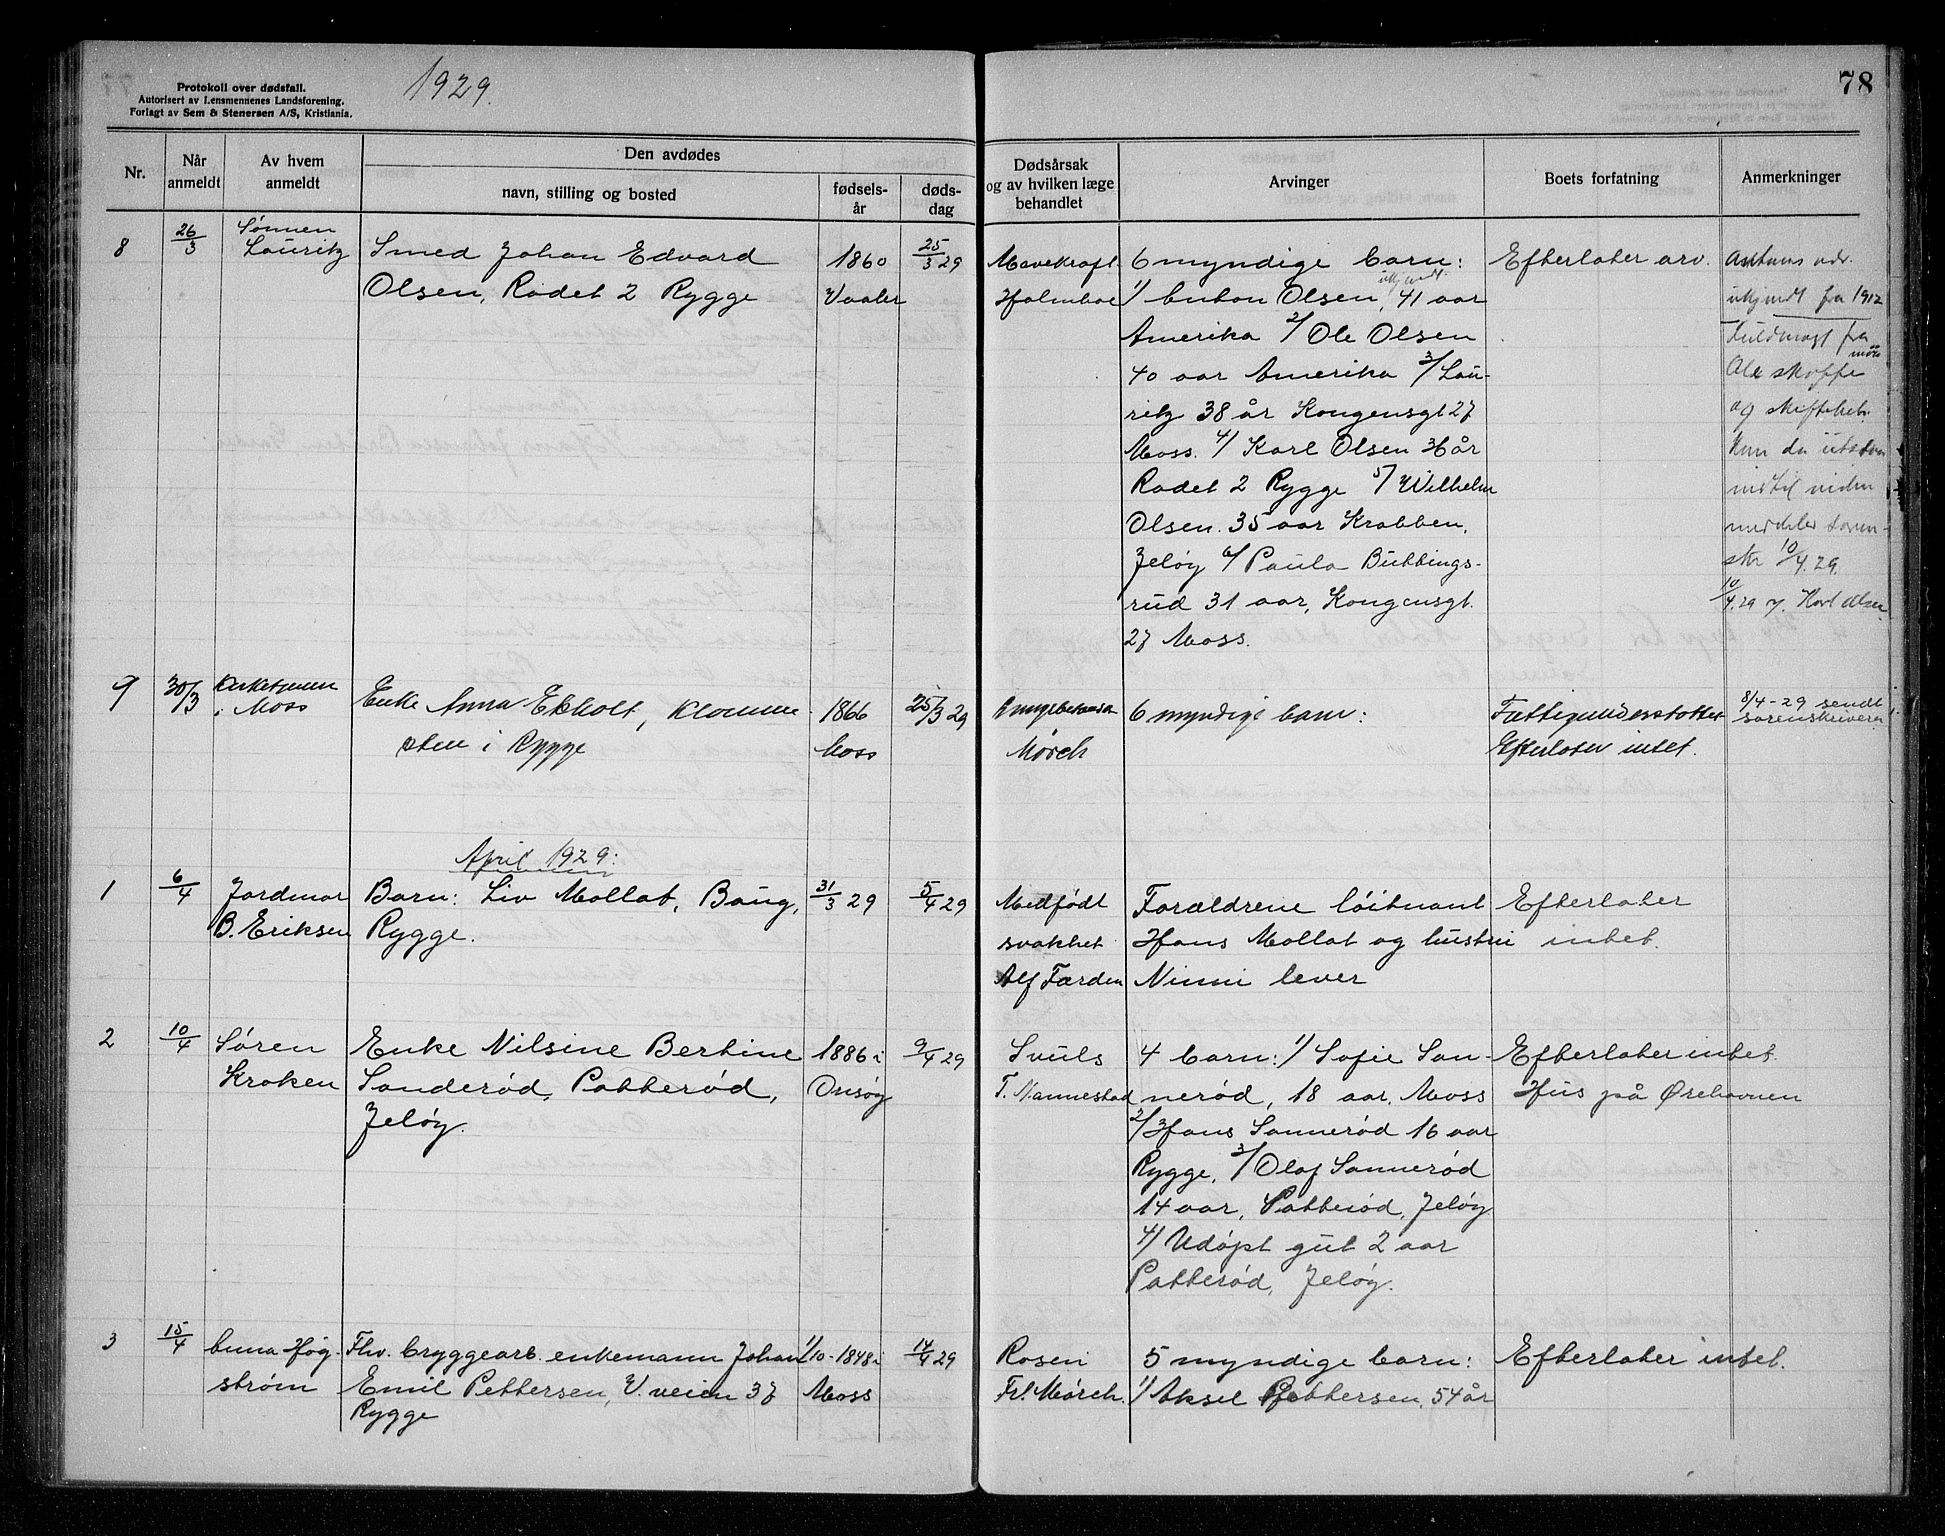 Protokoll over dødsfall.
Autorisert av Lensmennenes Landsforening.
Forlagt av Sem & Stenersen A/S, Kristiania.
1929.
78
Nr.
Når anmeldt
Av hvem anmeldt
Den avdødes
navn, stilling og bosted
fødsels-år
døds-dag
Dødsårsak og av hvilken læge behandlet
Arvinger
Boets forfatning
Anmerkninger
8
26/3
Sønnen
Lauritz
Smed Johan Edvard
Olsen, Rødet 2 Rygge
1860
Vaaler
25/3 29
Mavekræft
Holmboe
6 myndige barn:
1/ Anton Olsen, ukjendt 41 aar
Amerika 2/ Ole Olsen
40 aar Amerika 3/ Lau-
ritz 38 år Kongensgt 27
Moss. 4/ Karl Olsen 36 år
Rødet 2 Rygge 5/ Wilhelm
Olsen. 35 aar Krabben,
Jeløy 6/ Paula Bubbings-
rud 31 aar, Kongensgt.
27 Moss.
Efterlater arv.
Antons adr.
ukjendt fra 1912
Fuldmagt fra
Ole skaffes
og skiftebeh.
Kan da utstaa
indtil viden
meddeles soren-
skr 10/4.29.
10/4.29 Karl Olsen
9
30/3
Kirketjenen
i Moss
Enke Anna Ekholt, Klomme
sten i Rygge
1866
Moss
25/3 29
Mørch
6 myndige barn:
Fattigunderstøttet
Efterlater intet.
8/4-29 sendt
sorenskriveren
April 1929:
1
6/4
Jordmor
B. Eriksen
Barn: Liv Mollat, Baug,
Rygge.
31/3 29
5/4 29
Medfødt
svakhet
Alf Færden
Forældrene løitnant
Hans Mollat og hustru
Ninni lever
Efterlater
intet.
2
10/4
Søren
Kroken
Enke Nilsine Bertine
Sanderød, Patterød,
Jeløy.
1886 i
Onsøy
9/4 29
Svuls
T. Nannestad
4 barn: 1/ Sofie San-
nerød, 18 aar. Moss
2/ Hans Sannerød 16 aar
Rygge, 3/ Olaf Sannerød
14 aar, Patterød, Jeløy
4/ Udøpt gut 2 aar
Patterød, Jeløy.
Efterlater intet.
Hus på Ørehavnen
3
15/4
Anna Høg-
strøm
Fhv. bryggearb. enkemann Johan
Emil Pettersen, V. veien 37
Rygge
1/10-1848 i
Moss
14/4 29
Rosen
Frl. Mørch.
5 myndige barn:
1/ Aksel Pettersen, 54 år
Efterlater intet.